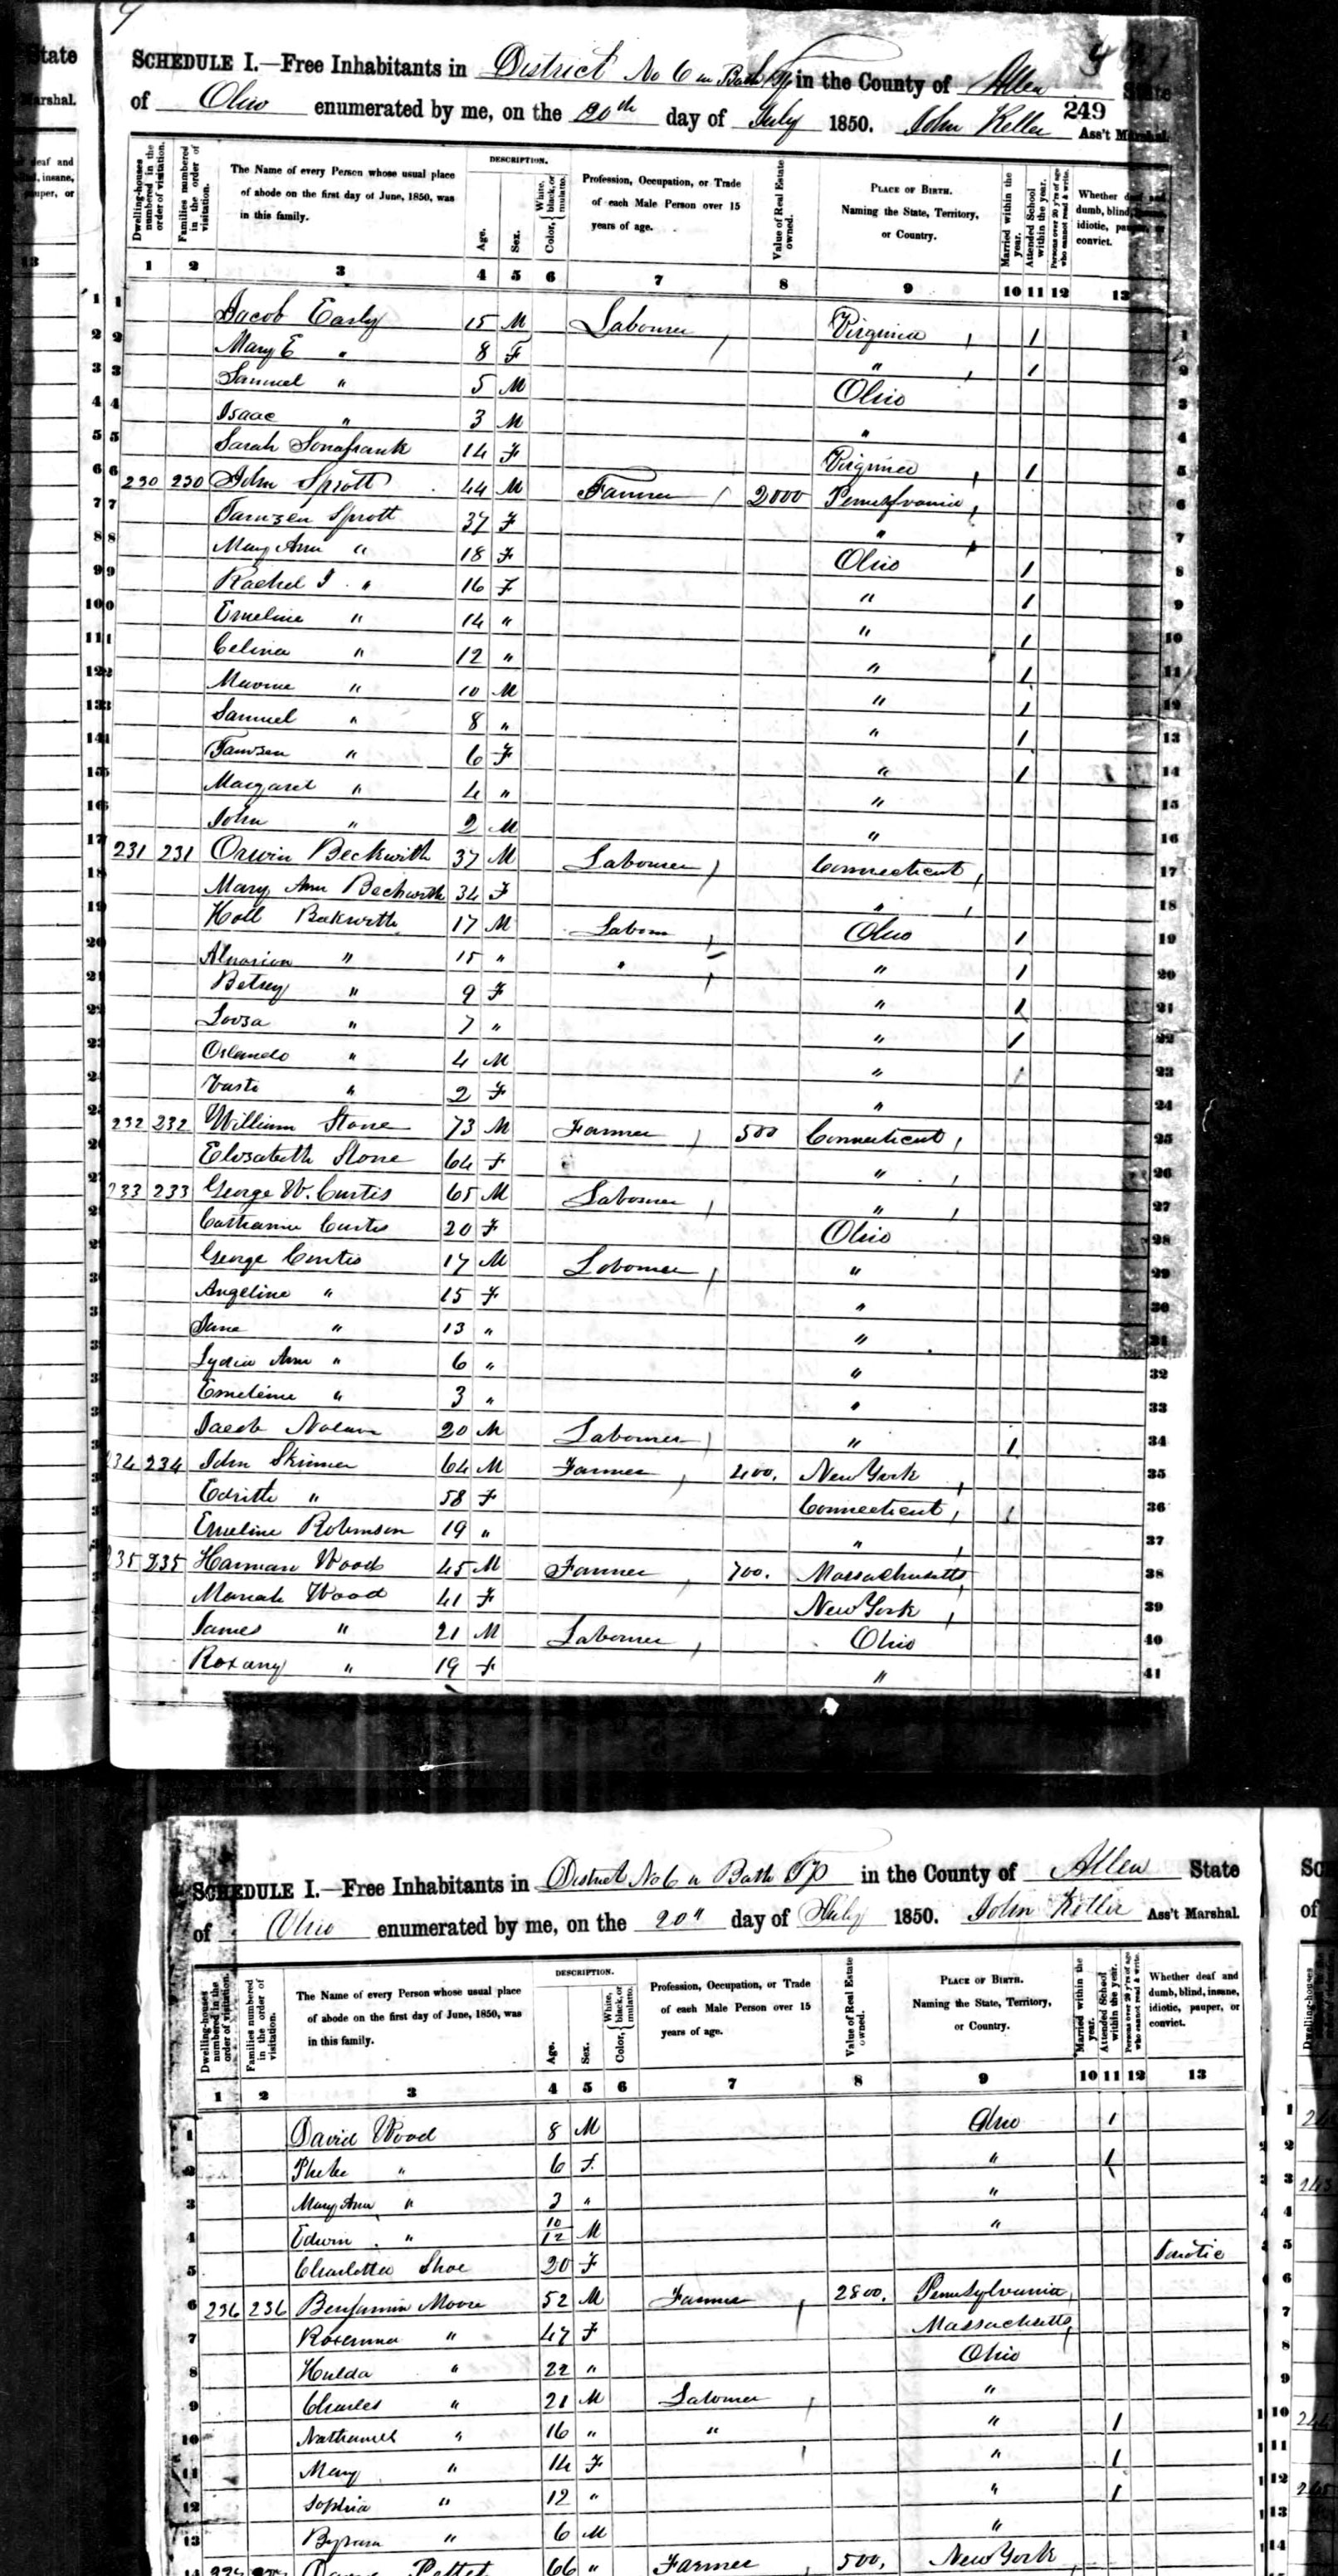 SCHEDULE I.—Free Inhabitants in District No 6 in Bath Tp in the County of Allen State
of Ohio enumerated by me, on the 20th day of July 1850. John Keller Ass't Marshal.
249
Dwelling-houses numbered in the order of visitation.
Families numbered in the order of visitation.
The Name of every Person whose usual place of abode on the first day of June, 1850, was in this family.
DESCRIPTION.
Age.
Sex.
Color, White, black, or mulatto.
Profession, Occupation, or Trade of each Male Person over 15 years of age.
Value of Real Estate owned.
PLACE OF BIRTH. Naming the State, Territory, or Country.
Married within the year.
Attended School within the year.
Persons over 20 y'rs of age who cannot read & write.
Whether deaf and dumb, blind, insane, idiotic, pauper, or convict.
1 2 3 4 5 6 7 8 9 10 11 12 13
1 Jacob Early 15 M Labourer Virginia 1
2 Mary E " 8 F " 1
3 Samuel " 5 M Ohio
4 Isaac " 3 M "
5 Sarah Sonafrank 14 F Virginia 1
6 230 230 John Sprott 44 M Farmer 2000 Pennsylvania
7 Tamzen Sprott 37 F "
8 Mary Ann " 18 F Ohio 1
9 Rachel J. " 16 F " 1
10 Emeline " 14 " " 1
11 Celina " 12 " " 1
12 " 10 M " 1
13 Samuel " 8 " " 1
14 Tamzen " 6 F " 1
15 Margaret " 4 " "
16 John " 2 M "
17 231 231 Orwin Beckwith 37 M Labourer Connecticut
18 Mary Ann Beckwith 34 F "
19 Beckwith 17 M Labour Ohio 1
20 " 15 " " " 1
21 Betsey " 9 F " 1
22 Lovsa " 7 " " 1
23 Orlando " 4 M " 1
24 " 2 F "
25 232 232 William Stone 73 M Farmer 500 Connecticut
26 Elisabeth Stone 64 F "
27 233 233 George W. Curtis 65 M Labourer "
28 Catharine Curtis 20 F Ohio
29 George Curtis 17 M Labourer "
30 Angeline " 15 F "
31 Jane " 13 " "
32 Lydia Ann " 6 " "
33 Emeline " 3 " "
34 Jacob Nolan 20 M Labourer " 1
35 234 234 John Skinner 64 M Farmer 400. New York
36 Edith " 58 F Connecticut 1
37 Emeline Robinson 19 " "
38 235 235 Harman Wood 45 M Farmer 700. Massachusetts
39 Mariah Wood 41 F New York
40 James " 21 M Labourer Ohio
41 Roxany " 19 F "
SCHEDULE I.—Free Inhabitants in District No 6 in Bath Tp in the County of Allen State
of Ohio enumerated by me, on the 20" day of July 1850. John Keller Ass't Marshal.
Dwelling-houses numbered in the order of visitation.
Families numbered in the order of visitation.
The Name of every Person whose usual place of abode on the first day of June, 1850, was in this family.
DESCRIPTION.
Age.
Sex.
Color, White, black, or mulatto.
Profession, Occupation, or Trade of each Male Person over 15 years of age.
Value of Real Estate owned.
PLACE OF BIRTH. Naming the State, Territory, or Country.
Married within the year.
Attended School within the year.
Persons over 20 y'rs of age who cannot read & write.
Whether deaf and dumb, blind, insane, idiotic, pauper, or convict.
1 2 3 4 5 6 7 8 9 10 11 12 13
1 David Wood 8 M Ohio 1
2 Phebe " 6 F " 1
3 Mary Ann " 3 " "
4 Edwin " 10/12 M "
5 Charlotta Shoe 20 F
6 236 236 Benjamin Moore 52 M Farmer 2800. Pennsylvania
7 Roxenna " 47 F Massachusetts
8 Hulda " 22 " Ohio
9 Charles " 21 M Labourer "
10 Nathaniel " 16 " " " 1
11 Mary " 14 F " 1
12 Sophia " 12 " " 1
13 Byram " 6 M "
14 66 " Farmer 500. New York